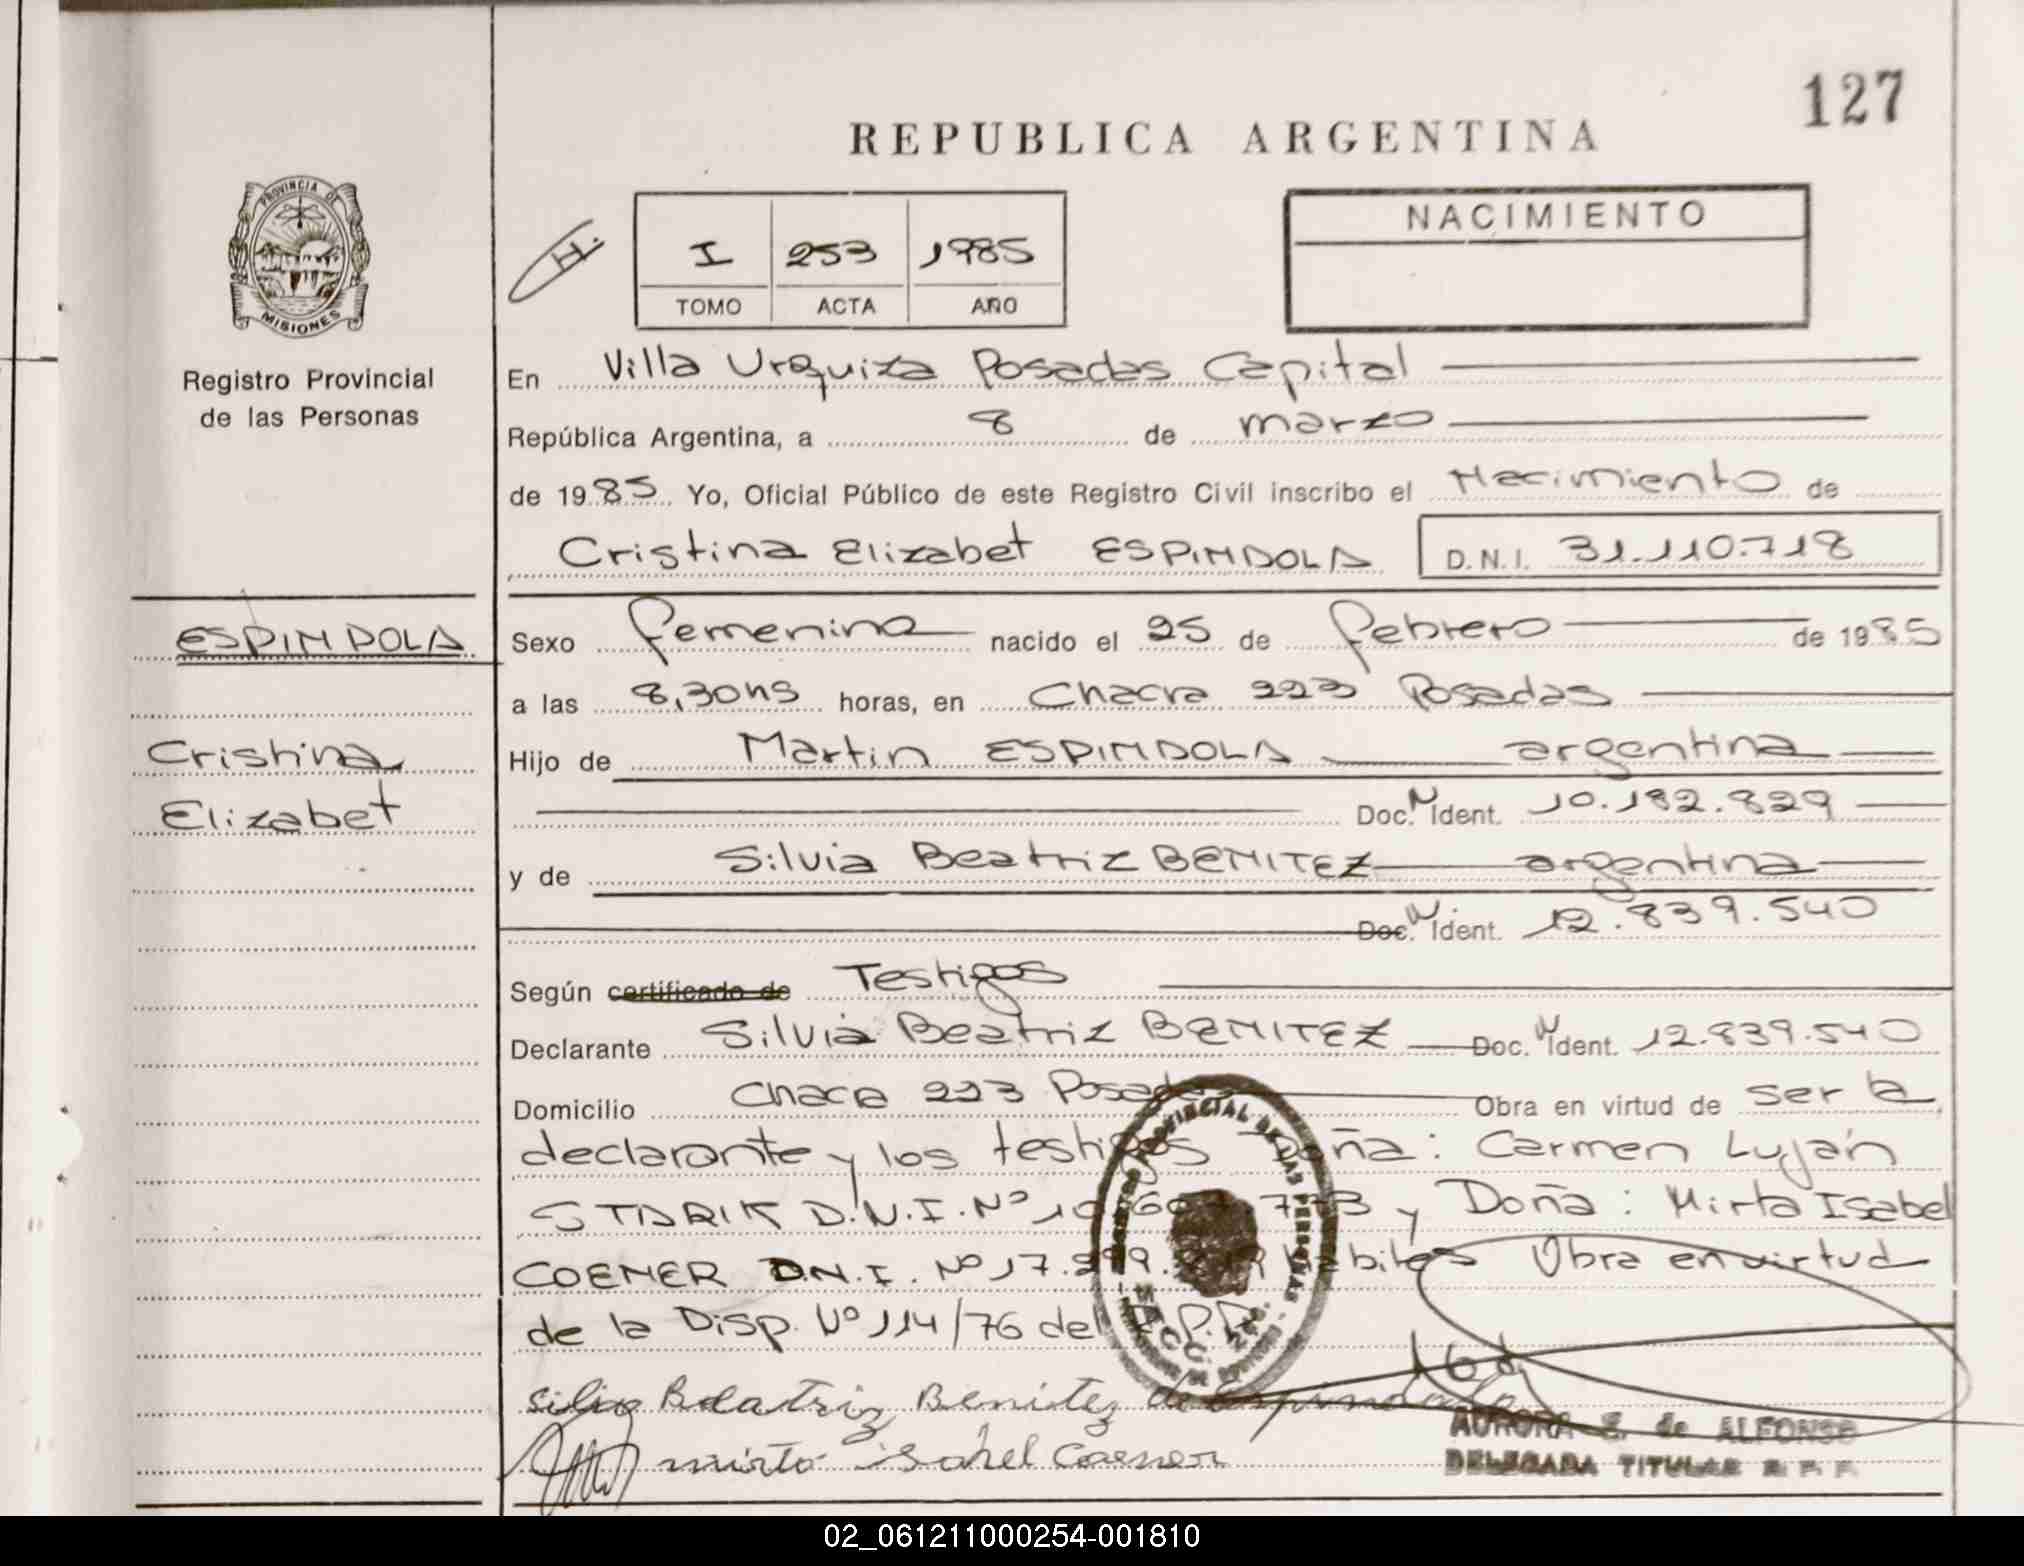 127
REPUBLICA ARGENTINA
PROVINCIA DE
MISIONES
Registro Provincial
de las Personas
I 253 1985
TOMO ACTA AÑO
NACIMIENTO
En Villa Urquiza Posadas Capital
República Argentina, a 8 de marzo
de 1985 Yo, Oficial Público de este Registro Civil inscribo el Nacimiento de
Cristina Elizabet ESPINDOLA D.N.I. 31.110.718
ESPINDOLA
Cristina
Elizabet
Sexo femenina nacido el 25 de febrero de 1985
a las 8,30hs horas, en Chacra 223 Posadas
Hijo de Martin ESPINDOLA argentina
Doc. N Ident. 10.182.829
y de Silvia Beatriz BENITEZ argentina
Doc. N Ident. 12.839.540
Según certificado de Testigos
Declarante Silvia Beatriz BENITEZ Doc. N Ident. 12.839.540
Domicilio Chacra 223 Posadas Obra en virtud de ser la
declarante y los testigos Doña: Carmen Luján
STARIK D.N.I. Nº y Doña: Mirta Isabel
COENER D.N.I. Nº 17. habiles Obra en virtud
de la Disp. Nº 114/76 del R.P.P.
Silvia Beatriz Benitez de Espindola
mirta isabel Coener
AURORA E. de ALFONSO
DELEGADA TITULAR R. P. P.
02_061211000254-001810